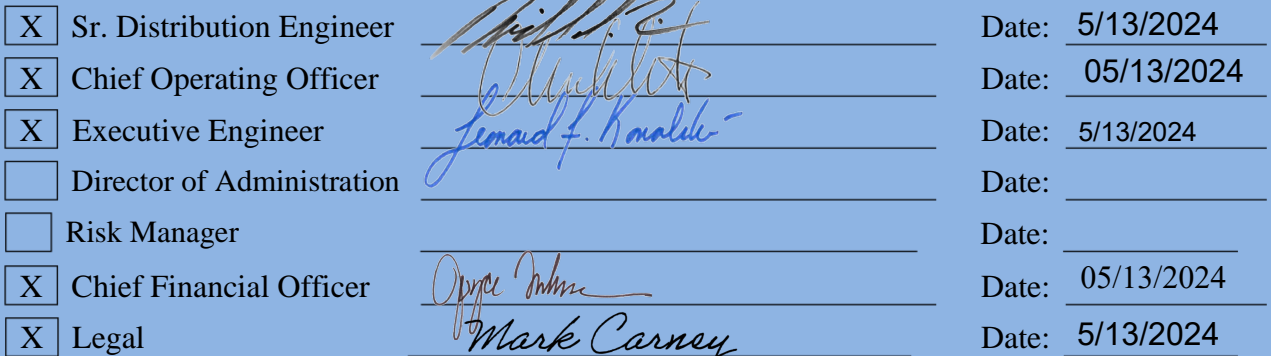 X Sr. Distribution Engineer Date: 5/13/2024
X Chief Operating Officer Date: 05/13/2024
X Executive Engineer Leonard F. Date: 5/13/2024
Director of Administration Date:
Risk Manager Date:
X Chief Financial Officer Joyce Date: 05/13/2024
X Legal Mark Carney Date: 5/13/2024